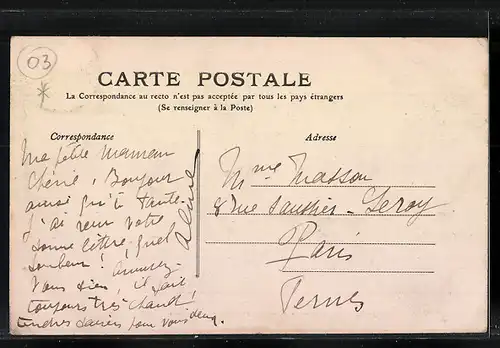 03
CARTE POSTALE
La Correspondance au recto n'est pas acceptée par tous les pays étrangers
(Se renseigner à la Poste)
Correspondance
Adresse
Ma petite Maman
Chérie, Bonjour
ainsi qu'à Tante.
J'ai reçu votre
bonne lettre, quel
bonheur! Amusez-
vous bien, il fait
toujours très chaud!
tendres baisers pour vous deux.
Mme Masson
8 rue Gauthier-Leroy
Paris
Ternes